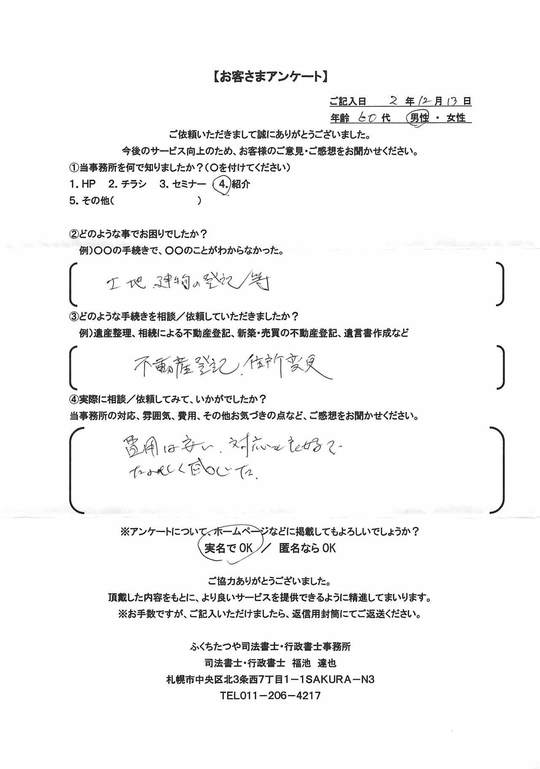 【お客さまアンケート】
ご記入日 2 年 12 月 13 日
年齢 60 代 男性 ・ 女性
ご依頼いただきまして誠にありがとうございました。
今後のサービス向上のため、お客様のご意見・ご感想をお聞かせください。
①当事務所を何で知りましたか？(〇を付けてください)
1. HP 2. チラシ 3. セミナー 4. 紹介
5. その他( )
②どのような事でお困りでしたか？
例)〇〇の手続きで、〇〇のことがわからなかった。
土地 建物の登記等
③どのような手続きを相談／依頼していただきましたか？
例)遺産整理、相続による不動産登記、新築・売買の不動産登記、遺言書作成など
不動産登記、住所変更
④実際に相談／依頼してみて、いかがでしたか？
当事務所の対応、雰囲気、費用、その他お気づきの点など、ご感想をお聞かせください。
費用は安い、対応も
感じた。
※アンケートについて、ホームページなどに掲載してもよろしいでしょうか？
実名で OK ／ 匿名なら OK
ご協力ありがとうございました。
頂戴した内容をもとに、より良いサービスを提供できるように精進してまいります。
※お手数ですが、ご記入いただけましたら、返信用封筒にてご返送ください。
ふくちたつや司法書士・行政書士事務所
司法書士・行政書士 福池 達也
札幌市中央区北3条西7丁目1－1SAKURA－N3
TEL011－206－4217